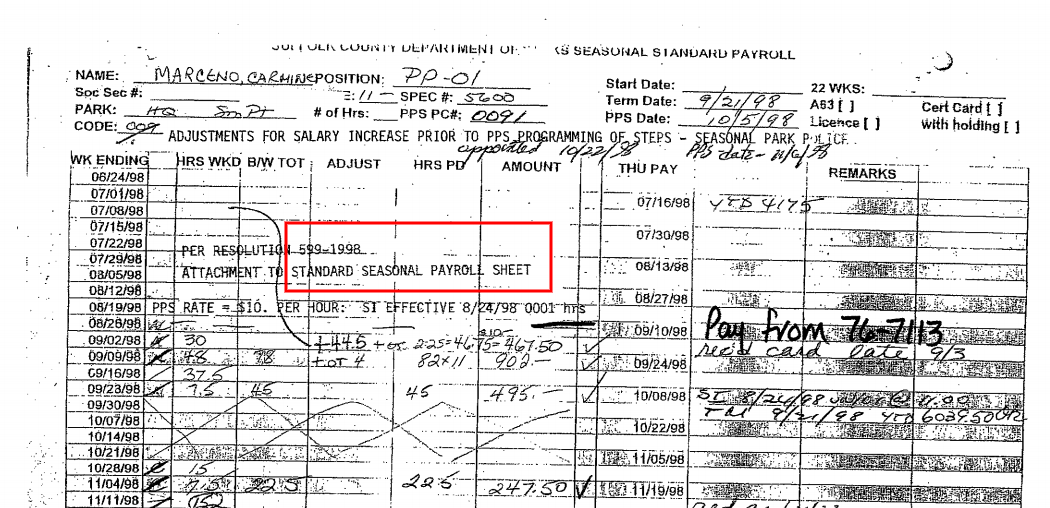 SUFFOLK COUNTY DEPARTMENT OF KS SEASONAL STANDARD PAYROLL
NAME: MARCENO, CARMINE POSITION: PP-01
Start Date: 22 WKS:
Soc Sec #: :11- SPEC #: 5600
Term Date: 9/21/98 A63 [ ] Cert Card [ ]
PARK: HQ Sm Pt # of Hrs: PPS PC#: 0091
PPS Date: 10/5/98 Licence [ ] with holding [ ]
CODE: 009 ADJUSTMENTS FOR SALARY INCREASE PRIOR TO PPS PROGRAMMING OF STEPS - SEASONAL PARK POLICE
appointed 10/22/98 PPS date - 11/6/98
WK ENDING HRS WKD B/W TOT ADJUST HRS PD AMOUNT THU PAY REMARKS
06/24/98
07/01/98 07/16/98 YTD 4175
07/08/98
07/15/98 07/30/98
07/22/98 PER RESOLUTION 599-1998
07/29/98 08/13/98
08/05/98 ATTACHMENT TO STANDARD SEASONAL PAYROLL SHEET
08/12/98 08/27/98
08/19/98 PPS RATE = $10. PER HOUR: SI EFFECTIVE 8/24/98 0001 hrs
08/26/98 09/10/98 Pay from 76-7113
09/02/98 30 +44.5 + OT 2.25=46.75= 467.50 rec'd card late 9/3
09/09/98 48 78 + OT 4 82x11 902.- 09/24/98
09/16/98 37.5
09/23/98 7.5 45 45 495.- 10/08/98 SI 8/24/98 @ 11.00
09/30/98 TM 9/21/98 YTD 6039.50
10/07/98 10/22/98
10/14/98
10/21/98 11/05/98
10/28/98 15
11/04/98 7.5 22.5 22.5 247.50 11/19/98
11/11/98